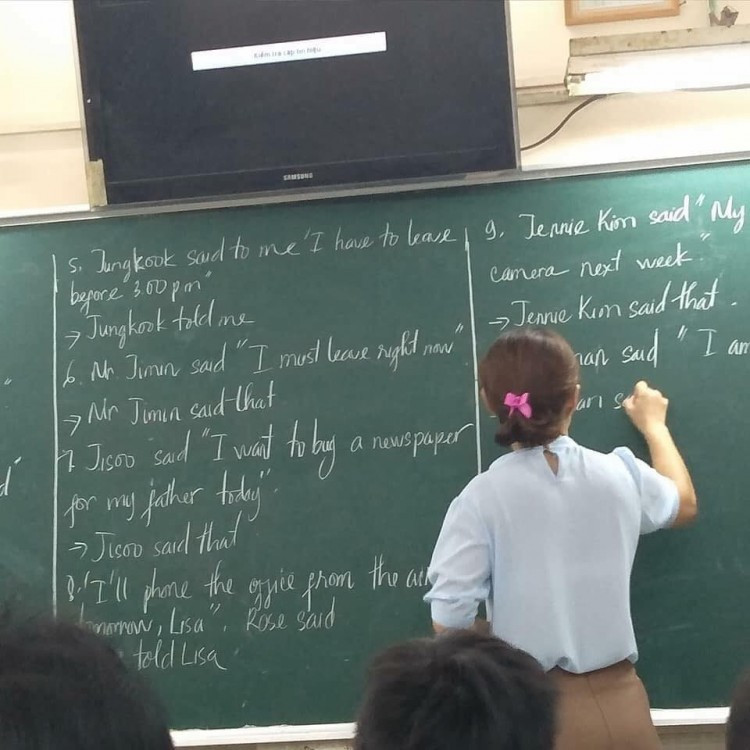 SAMSUNG
5. Jungkook said to me "I have to leave
before 3.00 pm"
→ Jungkook told me
6. Mr. Jimin said "I must leave right now"
→ Mr Jimin said that
7. Jisoo said "I want to buy a newspaper
for my father today".
→ Jisoo said that
8. "I'll phone the office from the
tomorrow, Lisa". Rose said
told Lisa
9. Jennie Kim said "My
camera next week"
→ Jennie Kim said that
said "I am